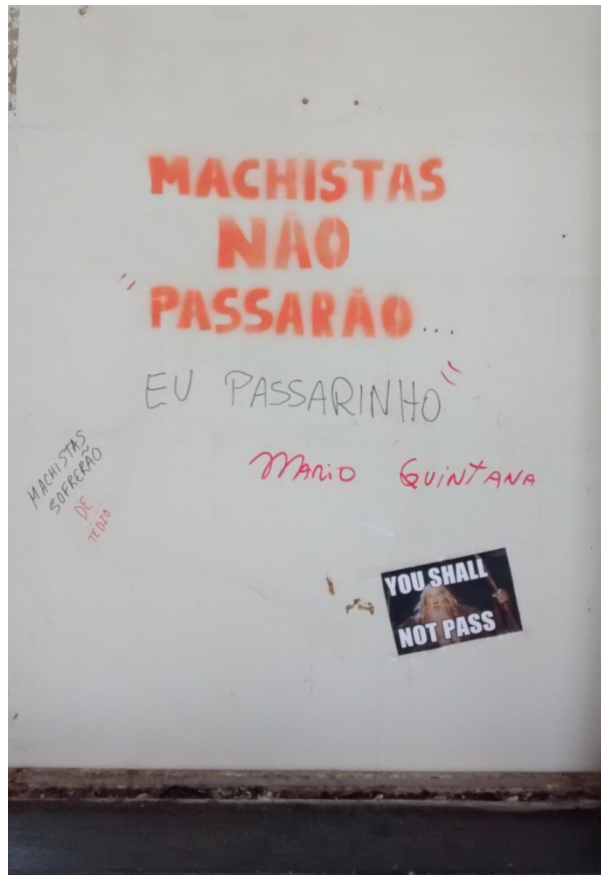 MACHISTAS
NÃO
"PASSARÃO...
EU PASSARINHO"
MARIO QUINTANA
MACHISTAS
SOFRERÃO
DE
TÉDIO
YOU SHALL
NOT PASS